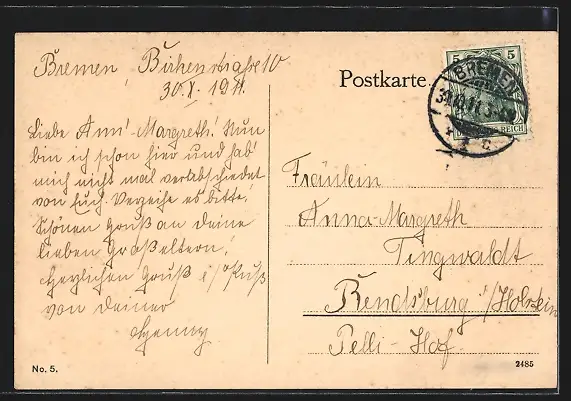 Bremen, Birkenstraße 10
30.X.1911.
Liebe Ann'-Margreth! Nun
bin ich schon hier und hab'
mich nicht mal verabschiedet
von Euch. Verzeihe es bitte!
Schönen Gruß an deine
lieben Großeltern!
Herzlichen Gruß i/Kuß
von deiner
Henny
Postkarte.
5 5
BREMEN
REICH
Fräulein
Anna-Margreth
Tingwaldt
Rendsburg i/Holstein
Pelli-Hof.
No. 5.
2485